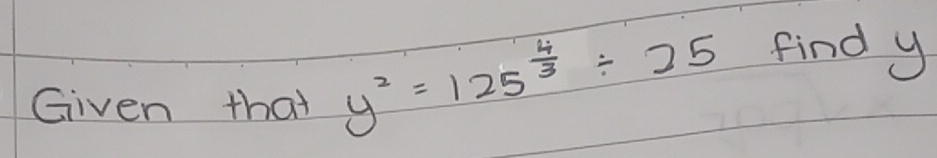 Given that y² = 125^(4/3) ÷ 25 find y